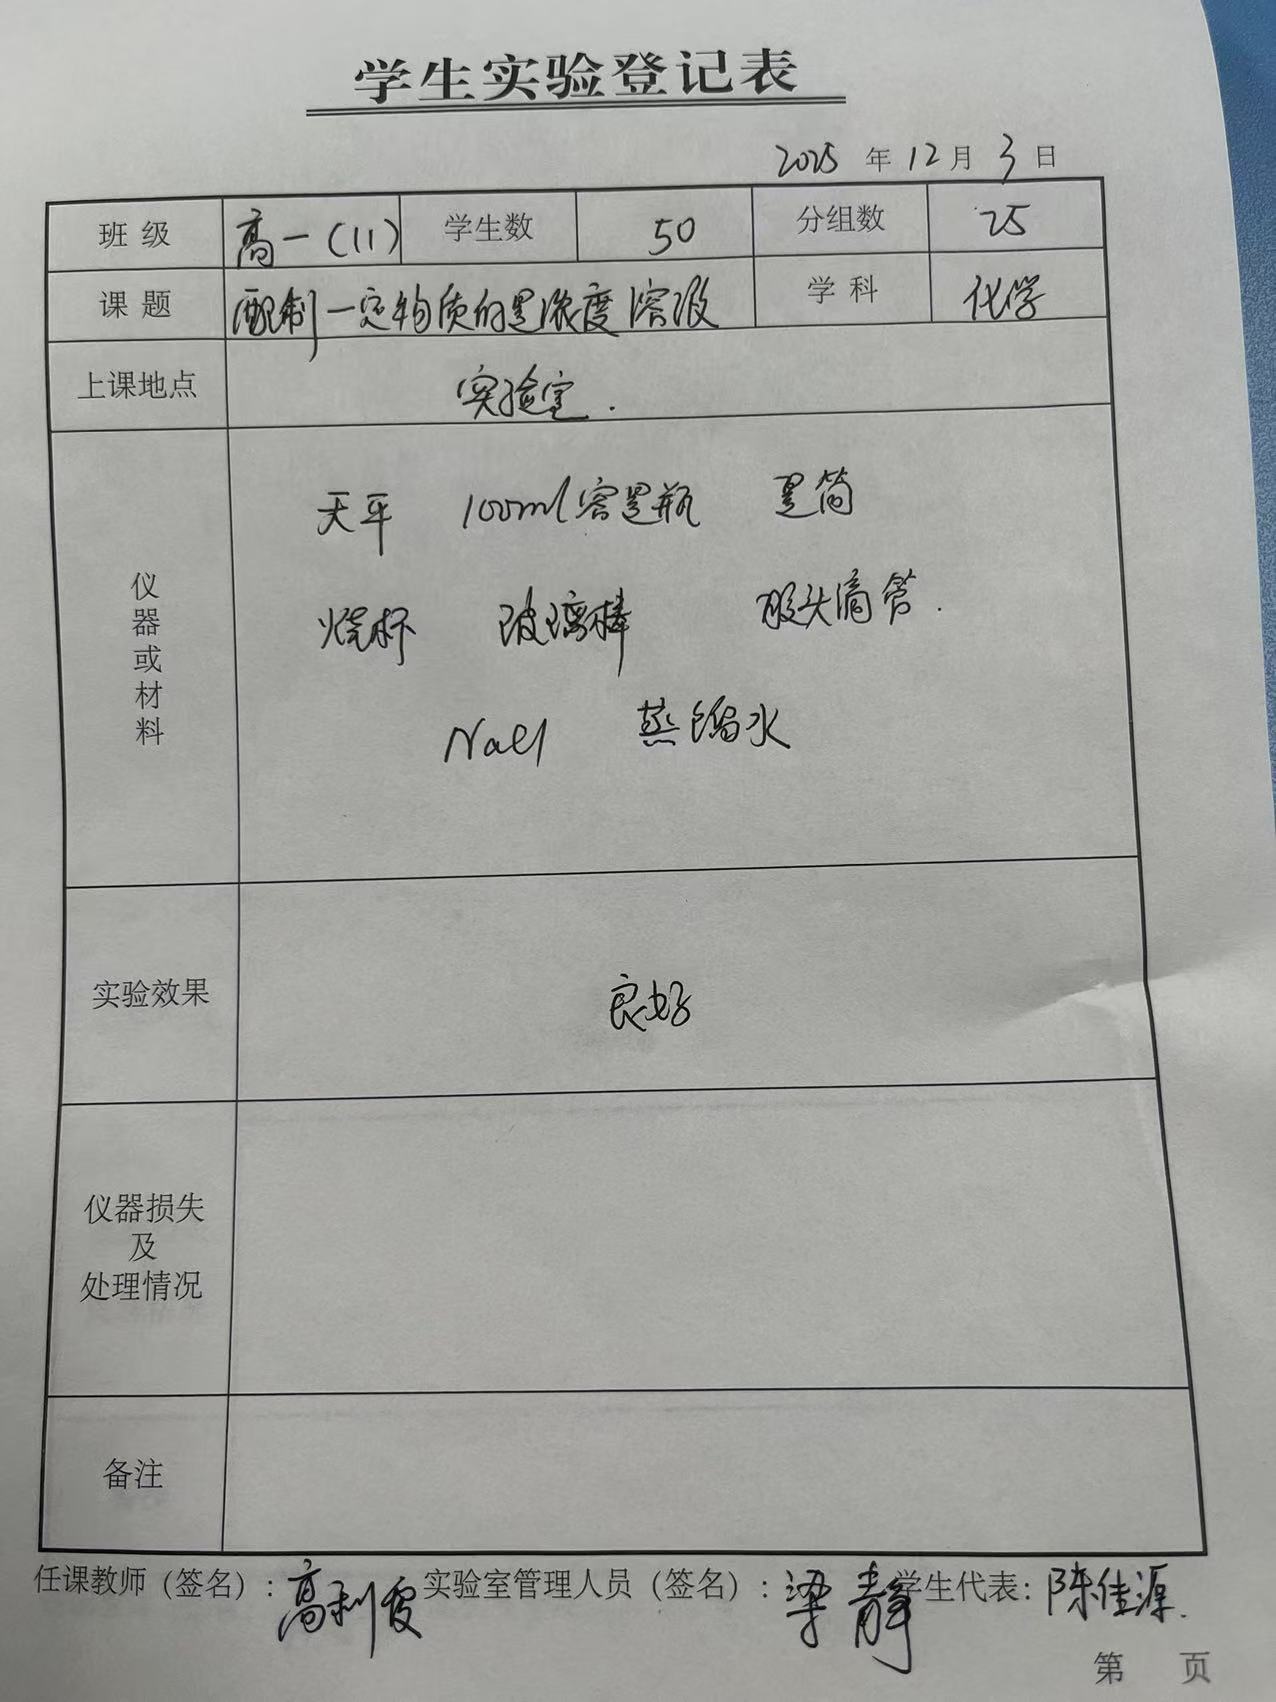 学生实验登记表
2025 年 12 月 3 日
班 级 高一(11) 学生数 50 分组数 25
课 题 配制一定物质的量浓度溶液 学 科 化学
上课地点 实验室.
仪器或材料
天平 100ml容量瓶 量筒
烧杯 玻璃棒 胶头滴管.
NaCl 蒸馏水
实验效果 良好
仪器损失
及
处理情况
备注
任课教师（签名）: 高利霞 实验室管理人员（签名）: 梁静 学生代表: 陈佳源.
第 页